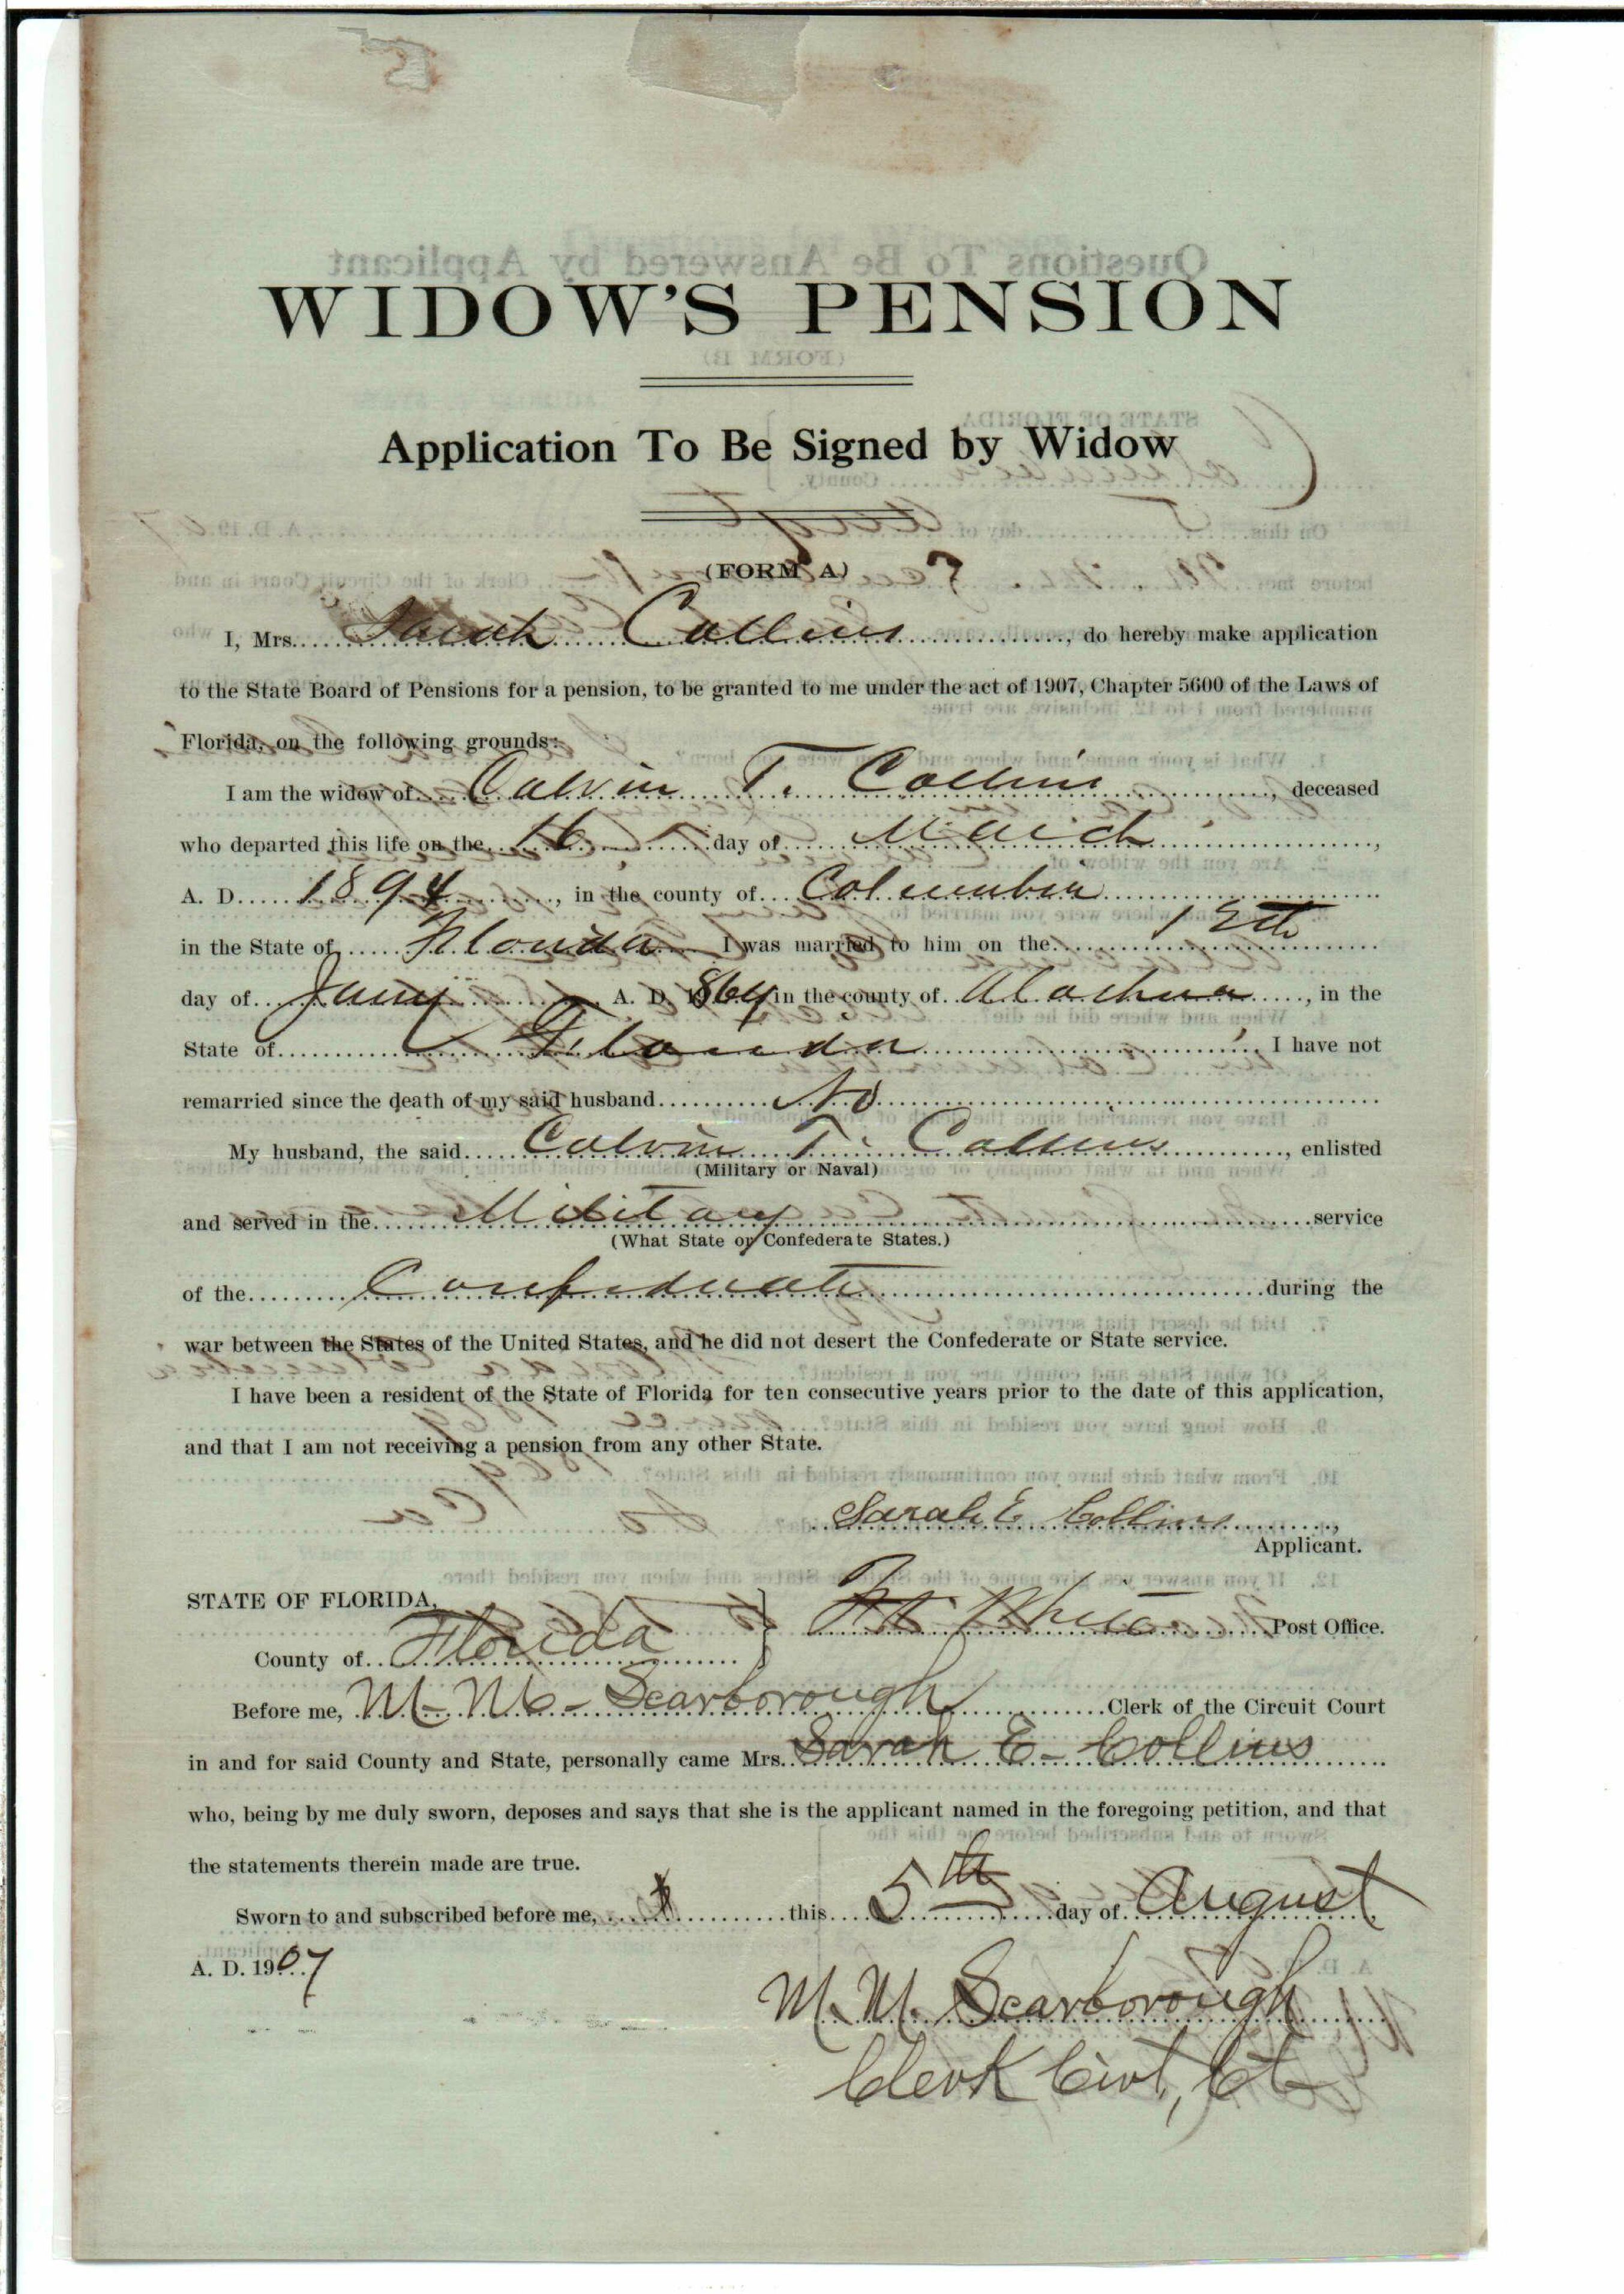 WIDOW'S PENSION
Application To Be Signed by Widow
(FORM A)
I, Mrs. Sarah Collins, do hereby make application
to the State Board of Pensions for a pension, to be granted to me under the act of 1907, Chapter 5600 of the Laws of
Florida, on the following grounds:
I am the widow of Calvin T. Collins, deceased
who departed this life on the 16 day of March,
A. D. 1894, in the county of Columbia
in the State of Florida I was married to him on the 12th
day of Jany A. D. 1864 in the county of Alachua, in the
State of Florida, I have not
remarried since the death of my said husband No
My husband, the said Calvin T. Collins, enlisted
(Military or Naval)
and served in the Military service
(What State or Confederate States.)
of the Confederate during the
war between the States of the United States, and he did not desert the Confederate or State service.
I have been a resident of the State of Florida for ten consecutive years prior to the date of this application,
and that I am not receiving a pension from any other State.
Sarah E Collins,
Applicant.
STATE OF FLORIDA,
Ft. White Post Office.
County of Florida
Before me, M. M. Scarborough Clerk of the Circuit Court
in and for said County and State, personally came Mrs. Sarah E. Collins
who, being by me duly sworn, deposes and says that she is the applicant named in the foregoing petition, and that
the statements therein made are true.
Sworn to and subscribed before me, this 5th day of August
A. D. 1907
M. M. Scarborough
Clerk Circt, Ct